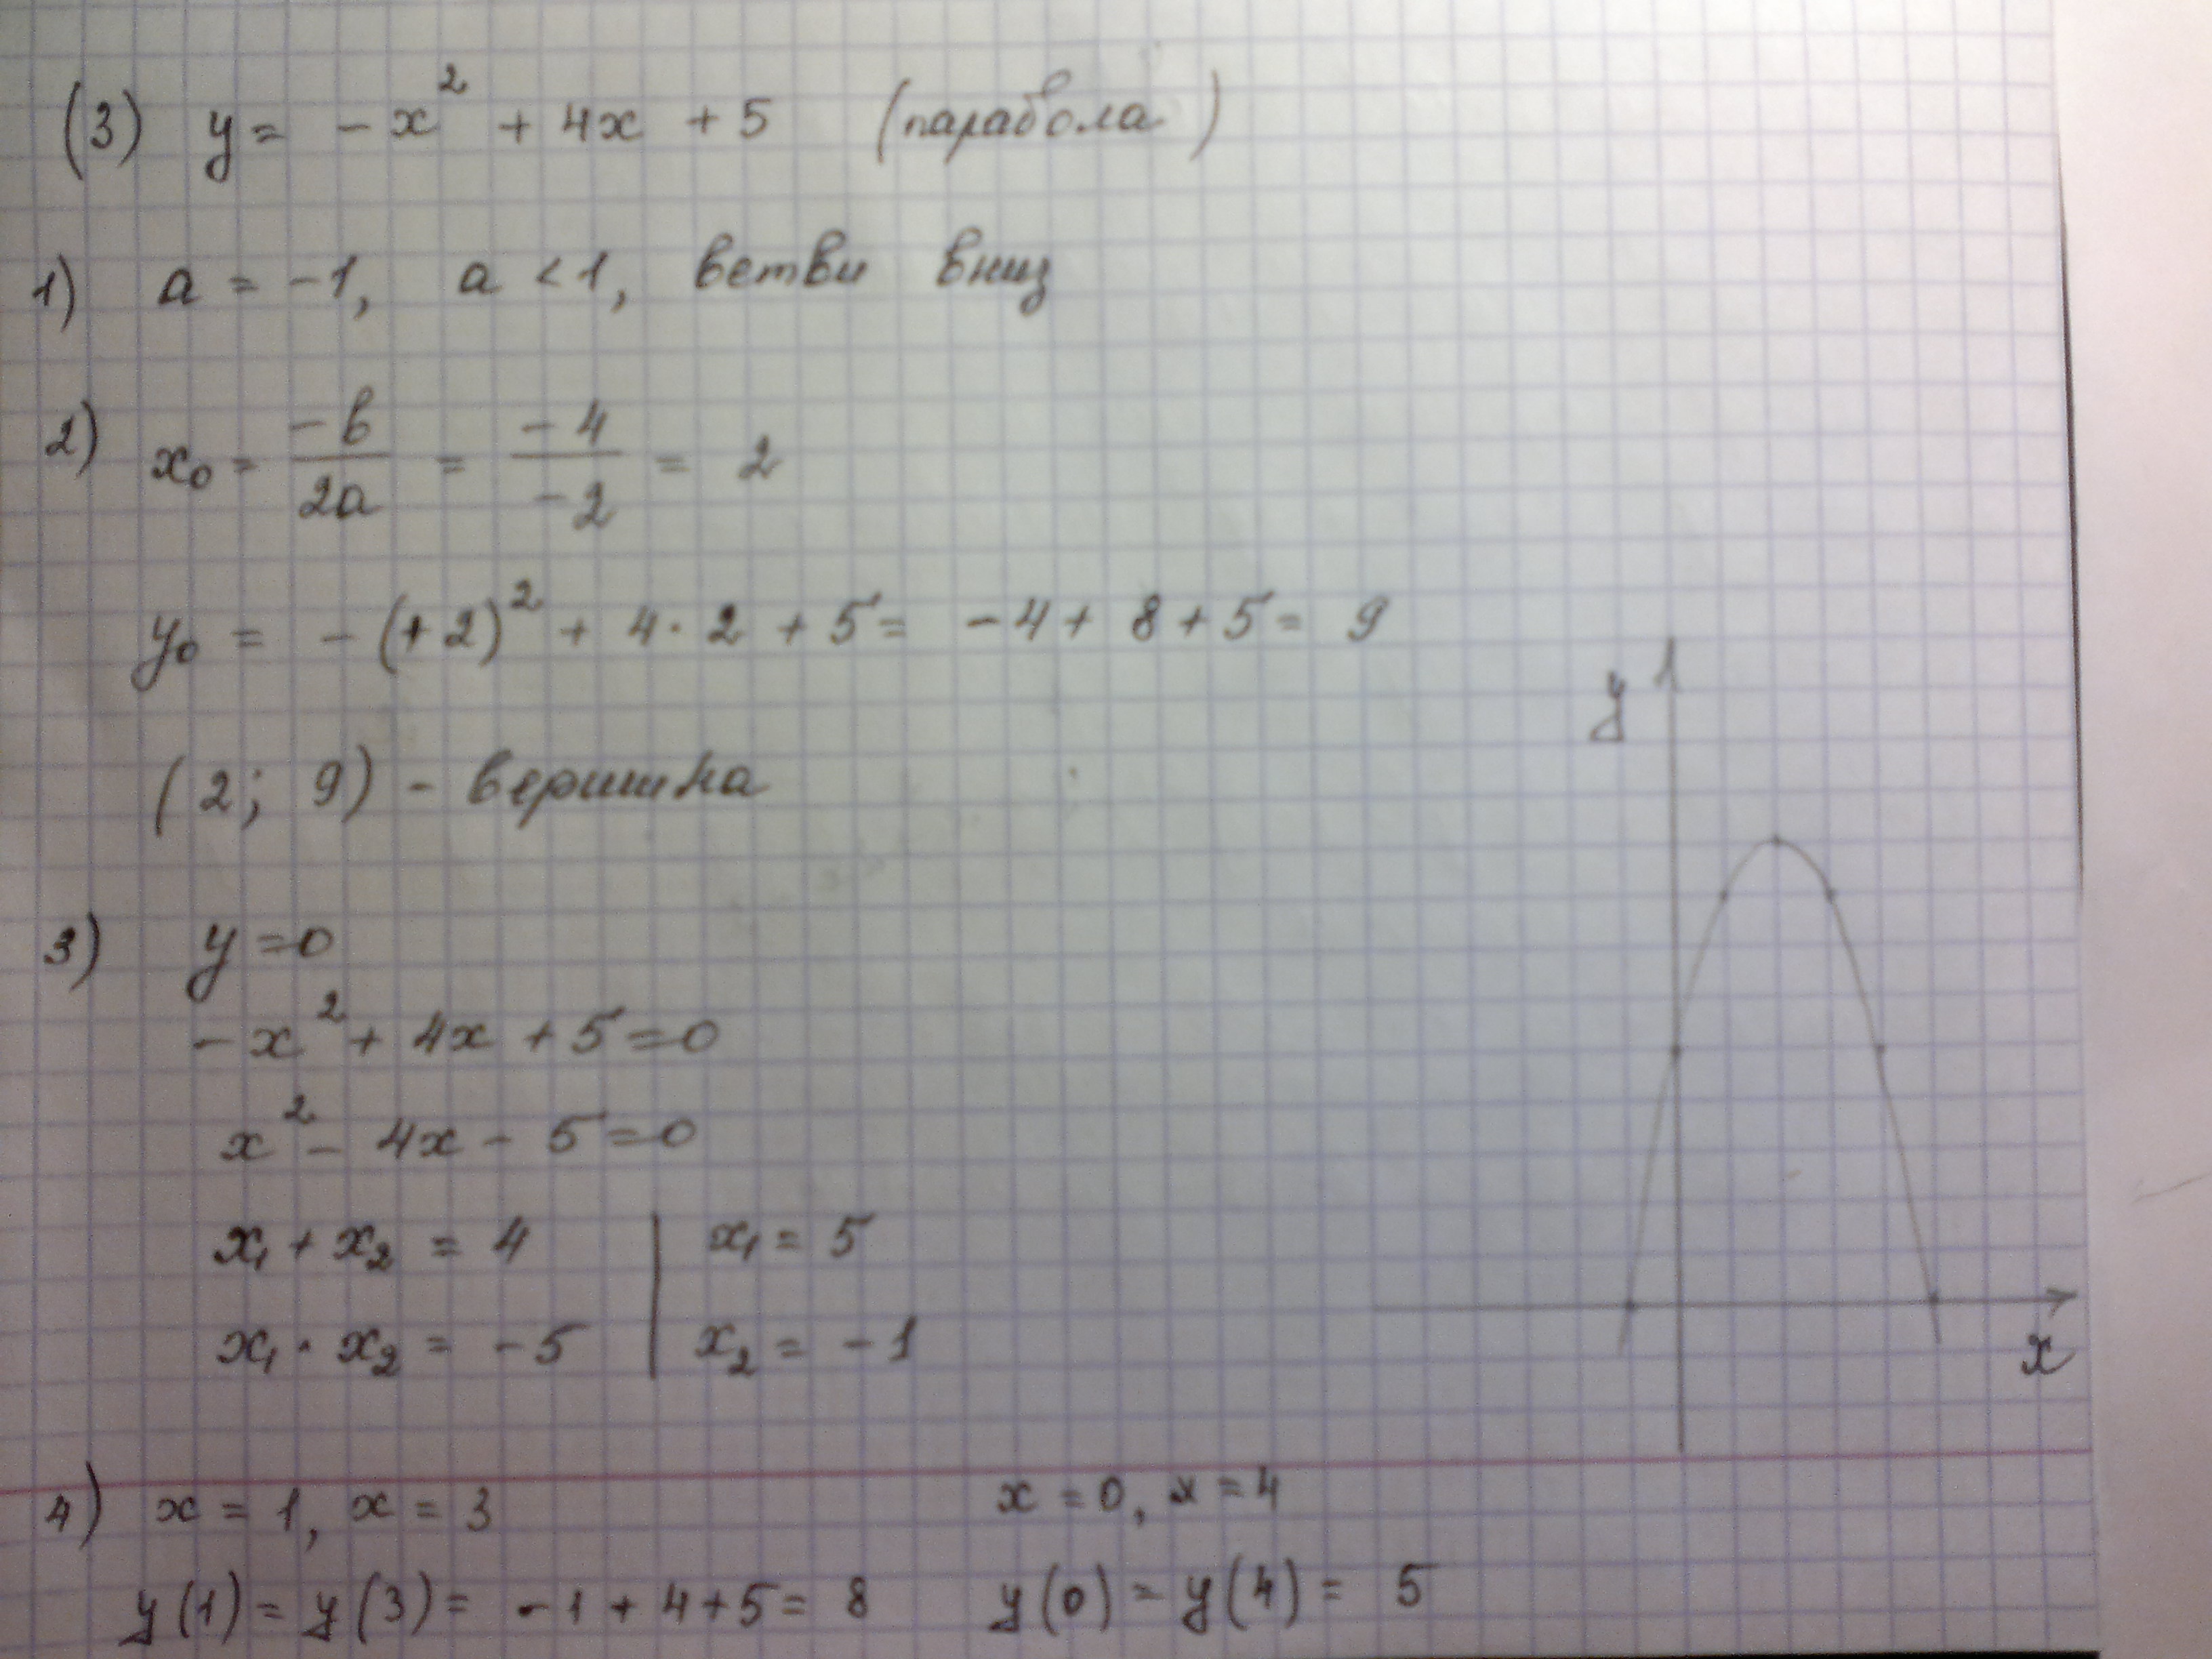 (3) y = -x² + 4x + 5 (парабола)
1) a = -1, a < 1, ветви вниз
2) x₀ = -b/2a = -4/-2 = 2
y₀ = -(+2)² + 4·2 + 5 = -4 + 8 + 5 = 9
(2; 9) - вершина
3) y = 0
-x² + 4x + 5 = 0
x² - 4x - 5 = 0
x₁ + x₂ = 4 | x₁ = 5
x₁ · x₂ = -5 | x₂ = -1
4) x = 1, x = 3
y(1) = y(3) = -1 + 4 + 5 = 8
x = 0, x = 4
y(0) = y(4) = 5
y
x